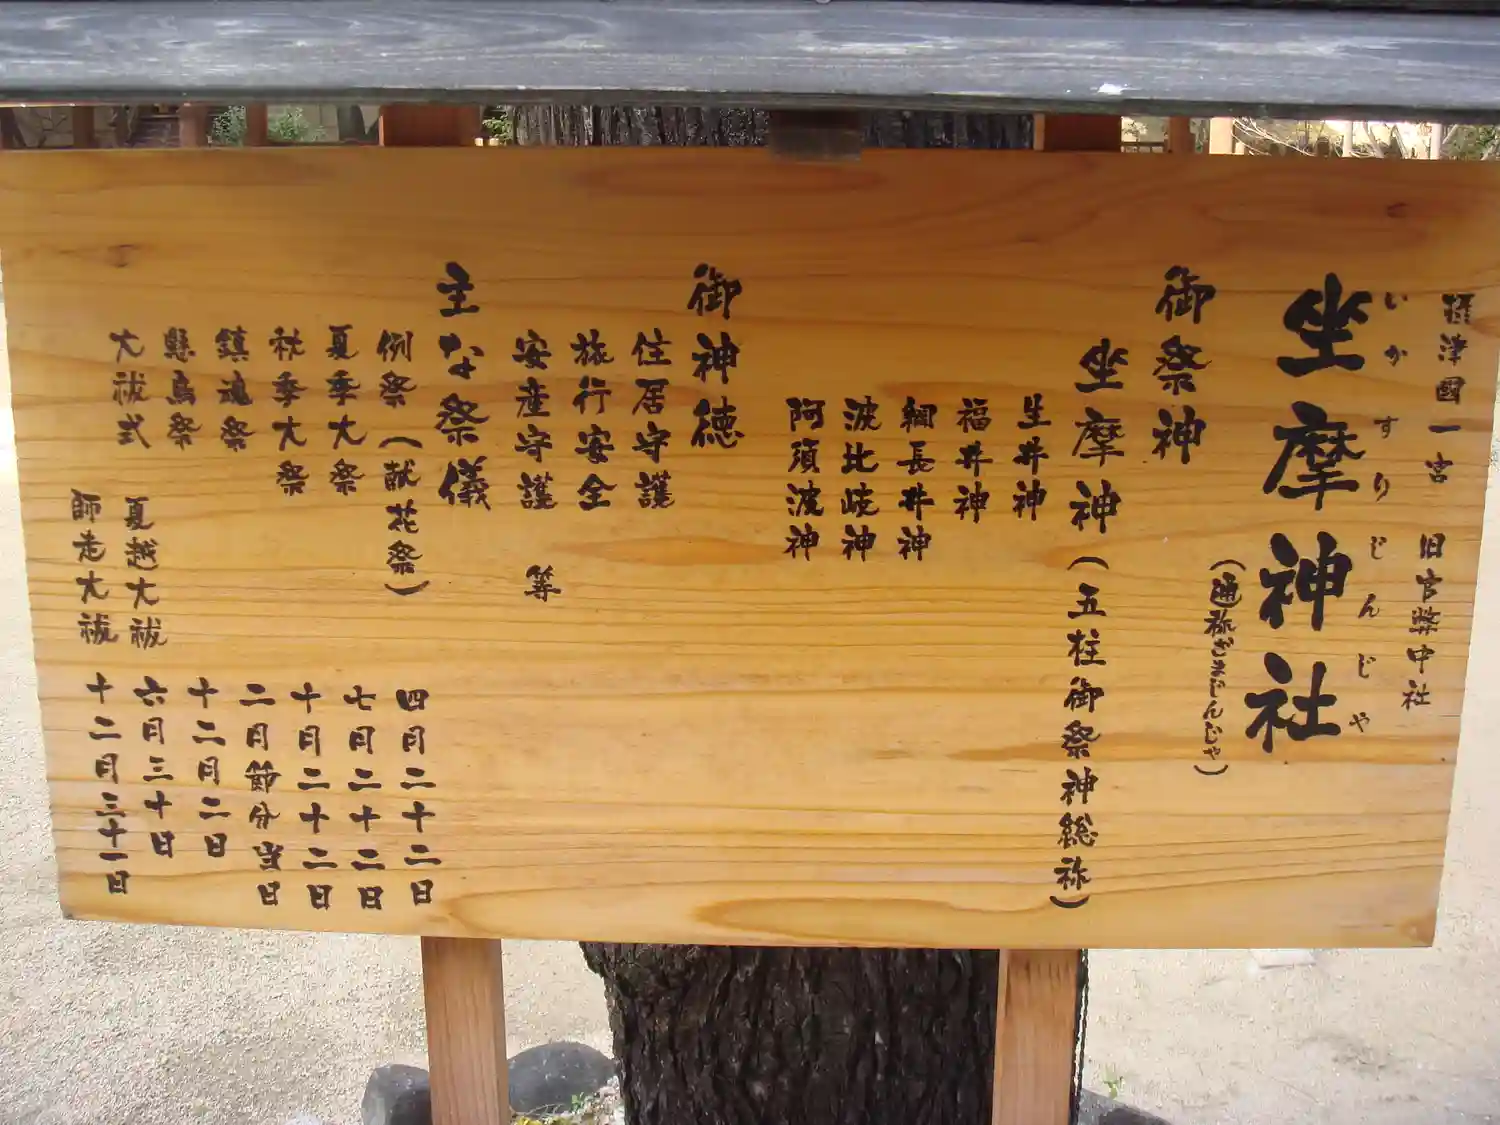 摂津國一宮　旧官幣中社
いかすりじんじゃ
坐摩神社
（通称ざまじんじゃ）
御祭神
坐摩神（五柱御祭神総称）
生井神
福井神
綱長井神
波比岐神
阿須波神
御神徳
住居守護
旅行安全
安産守護　等
主な祭儀
例祭（献花祭）　四月二十二日
夏季大祭　七月二十二日
秋季大祭　十月二十二日
鎮魂祭　二月節分当日
懸鳥祭　十二月二日
大祓式　夏越大祓　六月三十日
師走大祓　十二月三十一日